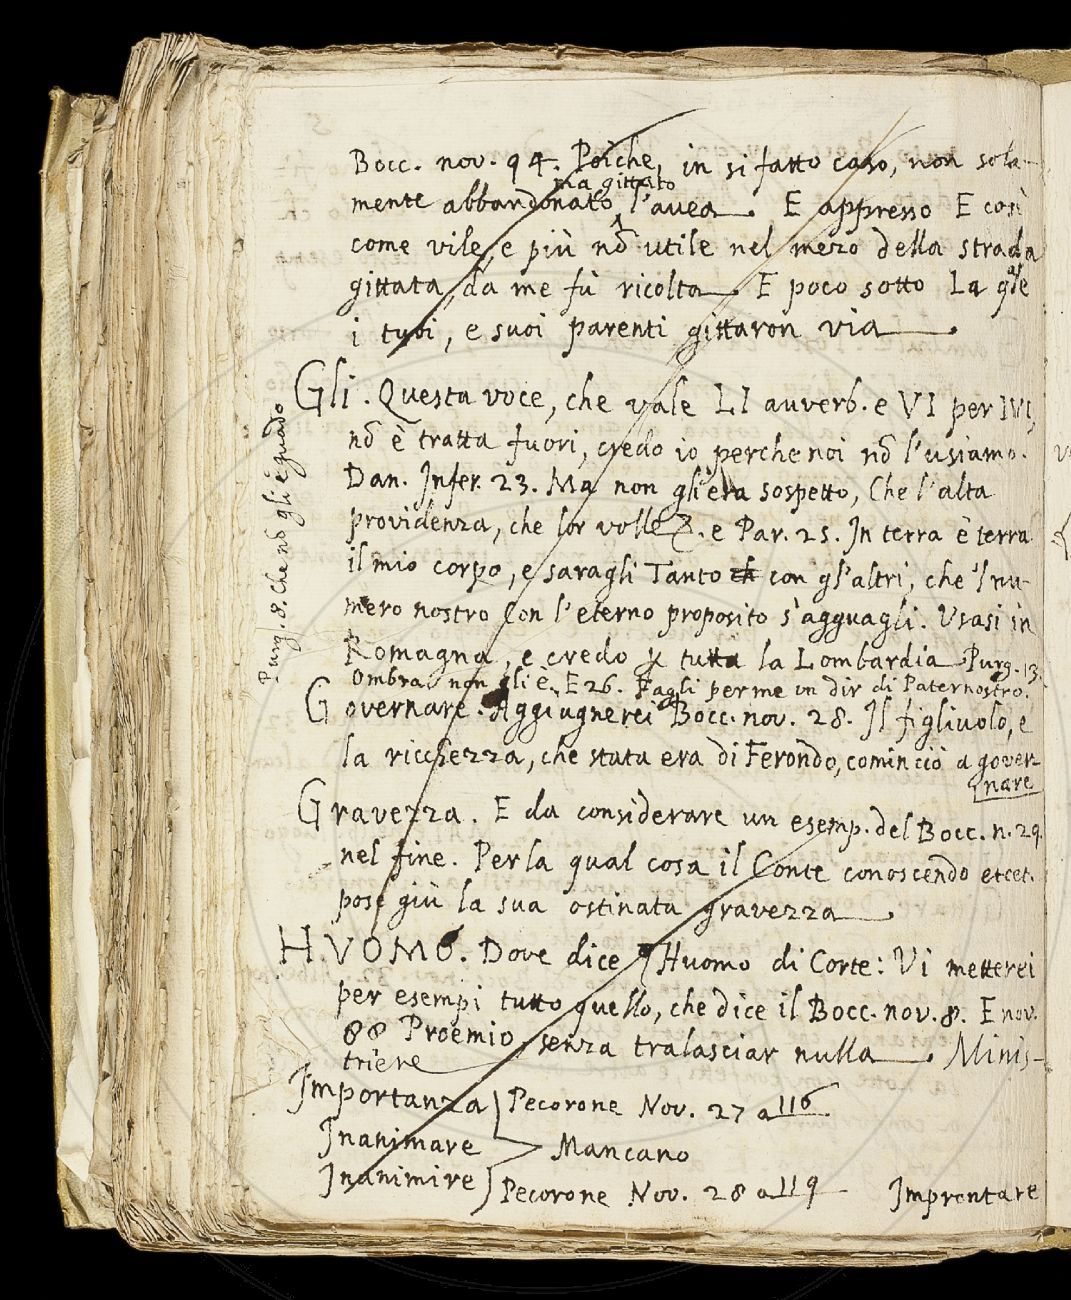 Bocc. nov. 94. Poiche, in si fatto caso, non sola-
ma gittato
mente abbandonato, l'avea. E appresso E così
come vile, e più nō utile nel mezo della strada
gittata, da me fù ricolta. E poco sotto La qle
i tuoi, e suoi parenti gittaron via.
Gli. Questa voce, che vale LI auverb. e VI per IVI,
nō è tratta fuori, credo io perche noi nō l'usiamo.
Dan. Infer. 23. Ma non gli era sospetto, Che l'alta
providenza, che lor volle &. e Par. 25. In terra è terra
il mio corpo, e saragli Tanto ch con gl'altri, che 'l nu-
mero nostro Con l'eterno proposito s'agguagli. Usasi in
Romagna, e credo p tutta la Lombardia Purg. 13.
Ombra non gli è. E 26. Fagli per me un dir di Paternostro.
Purg. 8. che nō gli è guado
Governare. Aggiugnerei Bocc. nov. 28. Il figliuolo, e
la ricchezza, che stata era di Ferondo, cominciò a gover-
nare
Gravezza. E da considerare un esemp. del Bocc. n. 29.
nel fine. Per la qual cosa il Conte conoscendo etcet.
pose giù la sua ostinata gravezza.
HUOMO. Dove dice Huomo di Corte: Vi metterei
per esempi tutto quello, che dice il Bocc. nov. 8. E nov.
88 Proemio, senza tralasciar nulla. Minis-
triere
Importanza Pecorone Nov. 27 a 116
Inanimare Mancano
Inanimire Pecorone Nov. 28 a 119 Imprentare